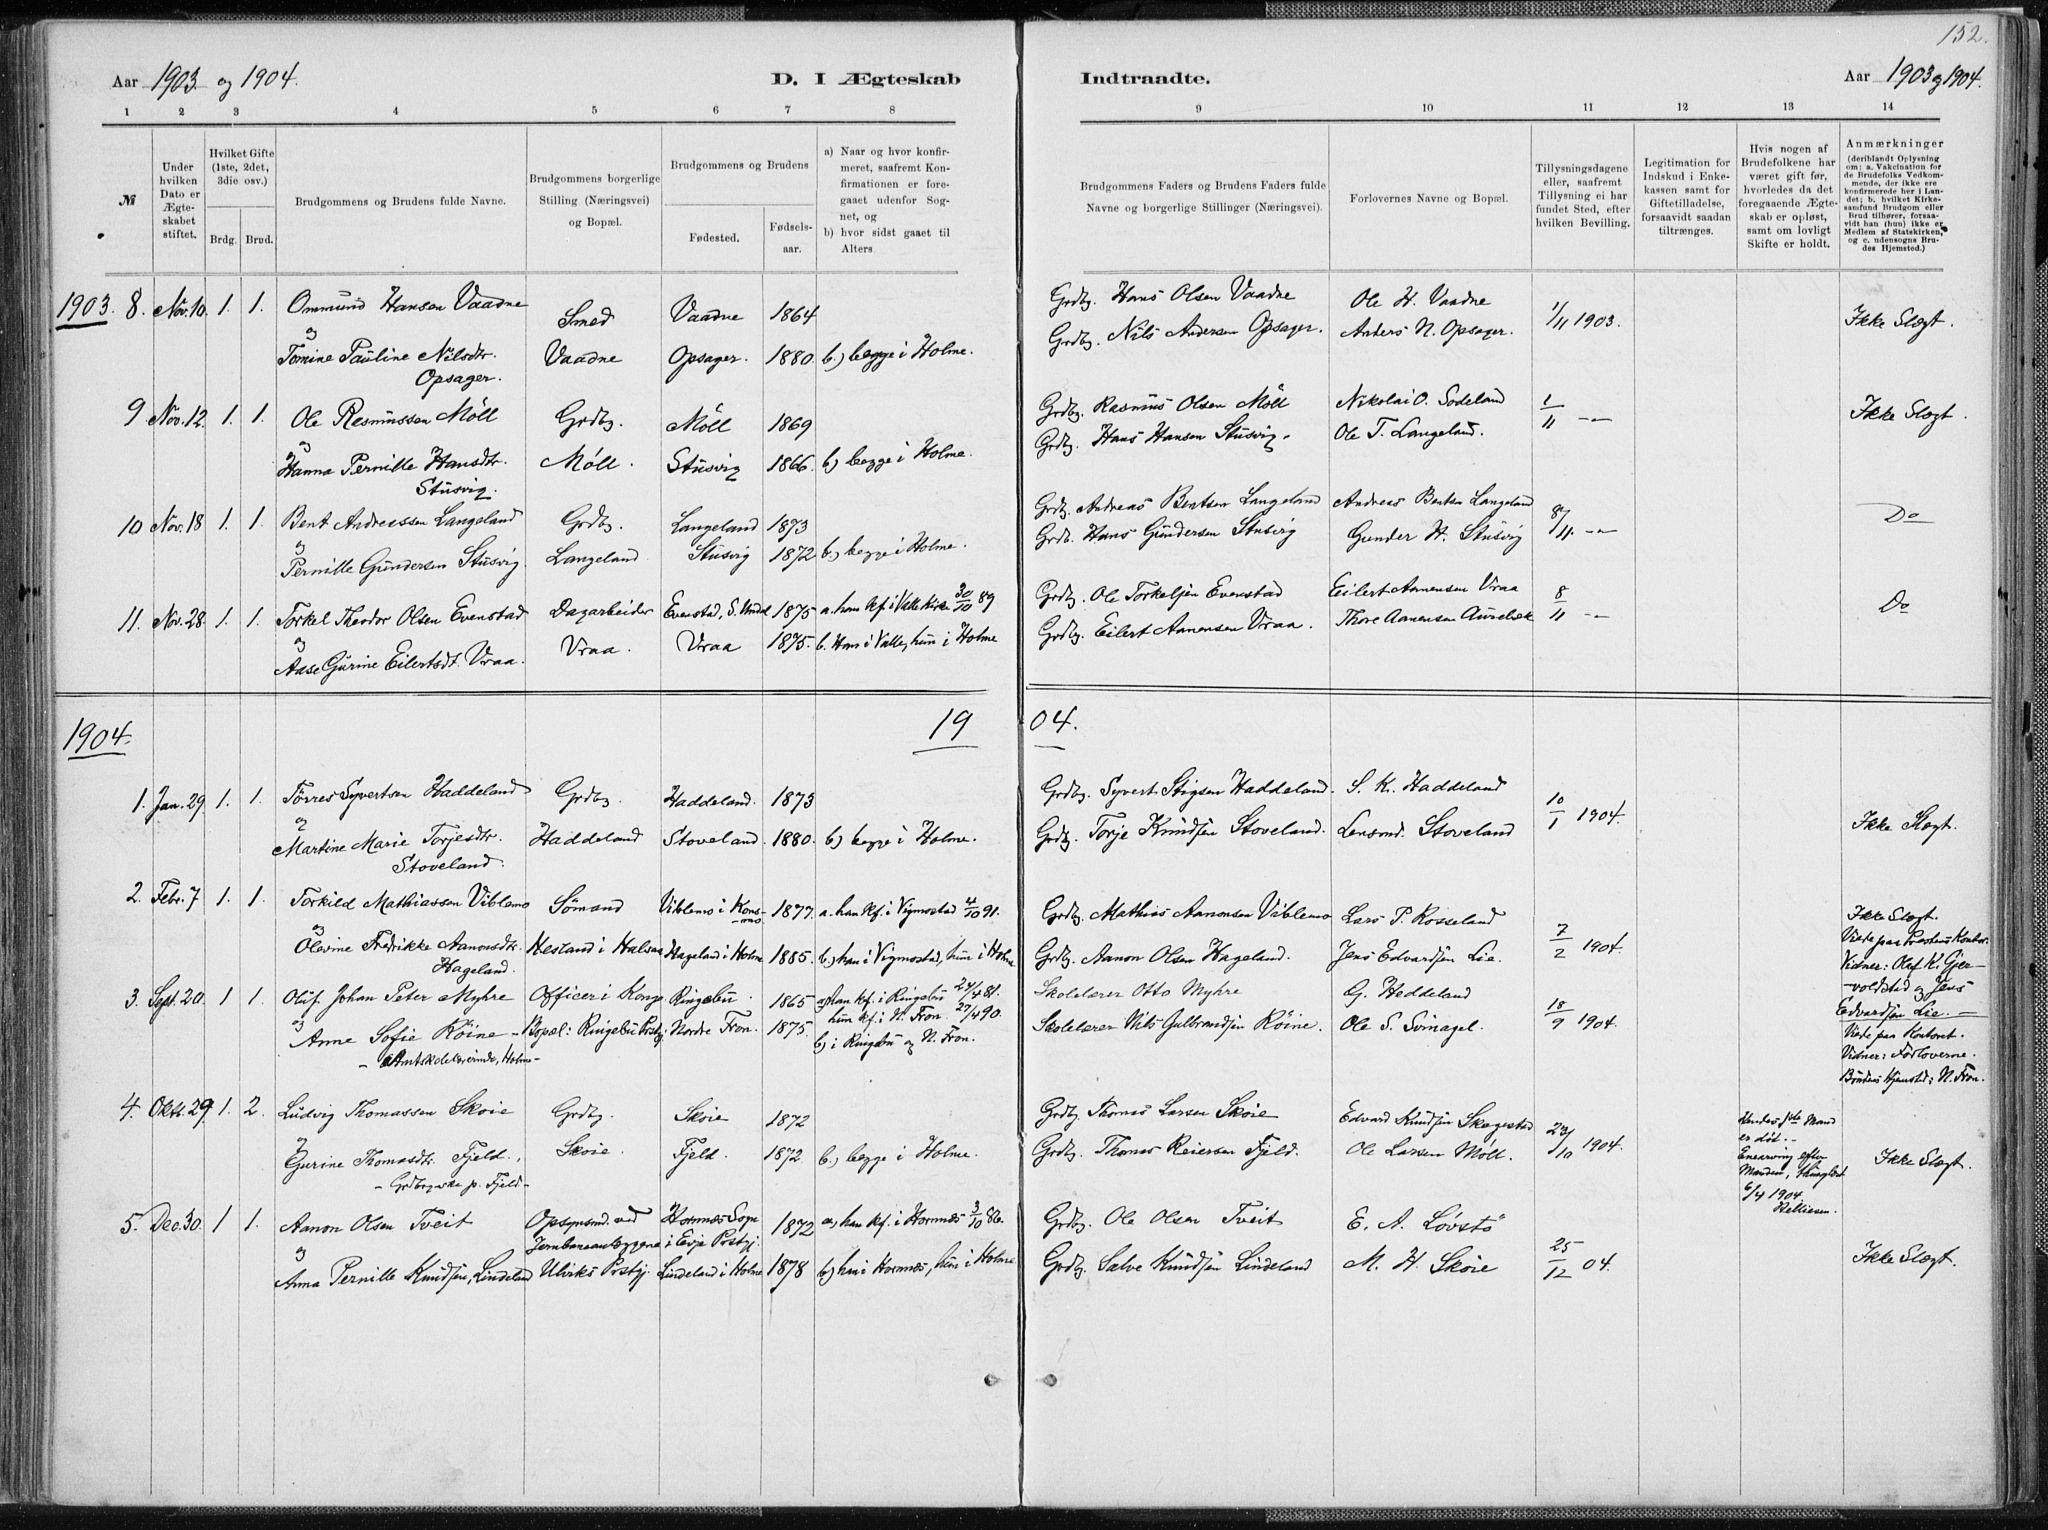 152.
Aar 1903. og 1904. D. I Ægteskab Indtraadte. Aar 1903 og 1904.
1 2 3 4 5 6 7 8 9 10 11 12 13 14
№
Under hvilken Dato er Ægteskabet stiftet.
Hvilket Gifte (1ste, 2det, 3die osv.)
Brdg. Brud.
Brudgommens og Brudens fulde Navne.
Brudgommens borgerlige Stilling (Næringsvei) og Bopæl.
Brudgommens og Brudens
Fødested. Fødselsaar.
a) Naar og hvor konfirmeret, saafremt Konfirmationen er foregaaet udenfor Sognet, og
b) hvor sidst gaaet til Alters
Brudgommens Faders og Brudens Faders fulde Navne og borgerlige Stillinger (Næringsvei).
Forlovernes Navne og Bopæl.
Tillysningsdagene eller, saafremt Tillysning ei har fundet Sted, efter hvilken Bevilling.
Legitimation for Indskud i Enkekassen samt for Giftetilladelse, forsaavidt saadan tiltrænges.
Hvis nogen af Brudefolkene har været gift før, hvorledes da det foregaaende Ægteskab er opløst, samt om lovligt Skifte er holdt.
Anmærkninger (deriblandt Oplysning om: a. Vakcination for de Brudefolks Vedkommende, der ikke ere konfirmerede her i Landet; b. hvilket Kirkesamfund Brudgom eller Brud tilhører, forsaavidt han (hun) ikke er Medlem af Statskirken, og c. udensogns Brudes Hjemsted.)
1903. 8. Nov. 10. 1. 1. Ommund Hansen Vaadne Smed Vaadne 1864 Grdbg. Hans Olsen Vaadne Ole H. Vaadne 1/11 1903. Ikke Slægt.
og Tomine Pauline Nilsdtr. Opsager. Vaadne Opsager. 1880. b.) begge i Holme. Grdbg. Nils Andersen Opsager. Anders N. Opsager.
9 Nov. 12. 1. 1. Ole Rasmussen Möll Grdbg. Möll 1869 Grdbg. Rasmus Olsen Möll Nikolai O. Sodeland 1/11 -"- Ikke Slægt.
og Hanna Pernille Hansdtr. Stusvig. Möll. Stusvig 1866. b) begge i Holme. Grdbg. Hans Hansen Stusvig. Ole T. Langeland.
10 Nov. 18 1. 1. Bent Andreassen Langeland Grdbg. Langeland 1873 Grdbg. Andreas Bentsen Langeland Andreas Bentsen Langeland 8/11. -"- Do
og Pernille Gundersen Stusvig. Langeland Stusvig 1872 b.) begge i Holme. Grdb. Hans Gundersen Stusvig Gunder H. Stusvig
11. Nov. 28. 1. 1. Torkel Theodor Olsen Evenstad Dagarbeider Evenstad, S. Undal 1875 a. han kf. i Valle Kirke 30/10 89 Grdbg. Ole Torkelsen Evenstad Eilert Aanensen Vraa 8/11 -"- Do
og Aase Gurine Eilertsdt. Vraa. Vraa. Vraa 1875. b. Han i Valle, hun i Holme Grdbg. Eilert Aanensen Vraa. Thore Aanensen
1904. 19 04.
1. Jan. 29. 1. 1. Tørres Syvertsen Haddeland Grdbg. Haddeland. 1873 Grdbg. Syvert Stigsen Haddeland. S. K. Haddeland 10/1 1904. Ikke Slægt.
og Martine Marie Torjesdtr. Stoveland. Haddeland Stoveland. 1880. b) begge i Holme. Grdbg. Torje Knudsen Stoveland. Lensmd. Stoveland
2. Febr. 7 1. 1. Torkild Mathiassen Viblemo Sömand Viblemo i Konsmo 1877. a. han kf. i Vigmostad 4/10 91. Grdbg. Mathias Aanonsen Viblemo Lars P. Rosseland 7/2 1904.
og Olevine Fredrikke Aanonsdtr. Hageland. Hesland i Halsaa Hageland i Holme 1885. b.) han i Vigmostad, hun i Holme Grdbg. Aanon Olsen Hageland. Jens Edvardsen Lie.
Ikke Slægt.
Viede paa Prestens Kontor.
Vidner: Olaf K. Gjervoldstad og Jens Edvardsen Lie.
3. Sept. 20. 1 1. Oluf Johan Peter Myhre Officer i Kongs Ringebu. 1865 a) han kf. i Ringebu 24/4 81. hun kf. i N. Fron. 27/4 90. Skolelærer Otto Myhre G. Heddeland 18/9 1904.
og Anne Sofie Röine - Bopæl: Ringebu Prstgj. Nordre Fron. 1875. b) i Ringebu og N. Fron. Skolelærer Nils Gulbrandsen Röine. Ole S. Svinagel.
- Amtskolelærerinde, Holme -
Viede paa Kontoret.
Vidner: Forloverne.
Brudens Hjemsted: N. Fron.
4. Oktr. 29. 1. 2. Ludvig Thomassen Skoie Grdbg. Skoie 1872 Grdbg. Thomas Larsen Skoie Edvard Knudsen Skagestad 23/10 1904.
og Gurine Thomasdtr. Fjeld. Skoie. Fjeld. 1872. b.) begge i Holme. Grdbg. Thomas Reiersen Fjeld. Ole Larsen Möll. Ikke Slægt.
- Grdbrgerske p. Fjeld -
Hendes 1ste Mand er död. -
Enearving efter Manden, thinglæst 6/4 1904.
5. Dec. 30. 1 1. Aanon Olsen Tveit Opsynsmd. ved Jernbaneanlæggene i Hornnes Sogn i Evje Prstgj. 1872 a) han kf. i Hornnes 3/10 86. Grdbg. Ole Olsen Tveit E. A. Lövstö 25/12 04. Ikke Slægt.
og Anna Pernille Knudsen, Lindeland Ulviks Prstgj. Lindeland i Holme 1878 b) han i Hornnes, hun i Holme Grdbg. Salve Knudsen Lindeland M. H. Skoie